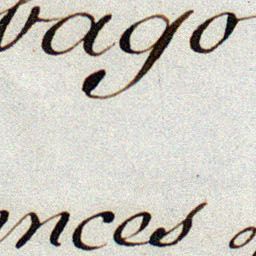 bago
ences o